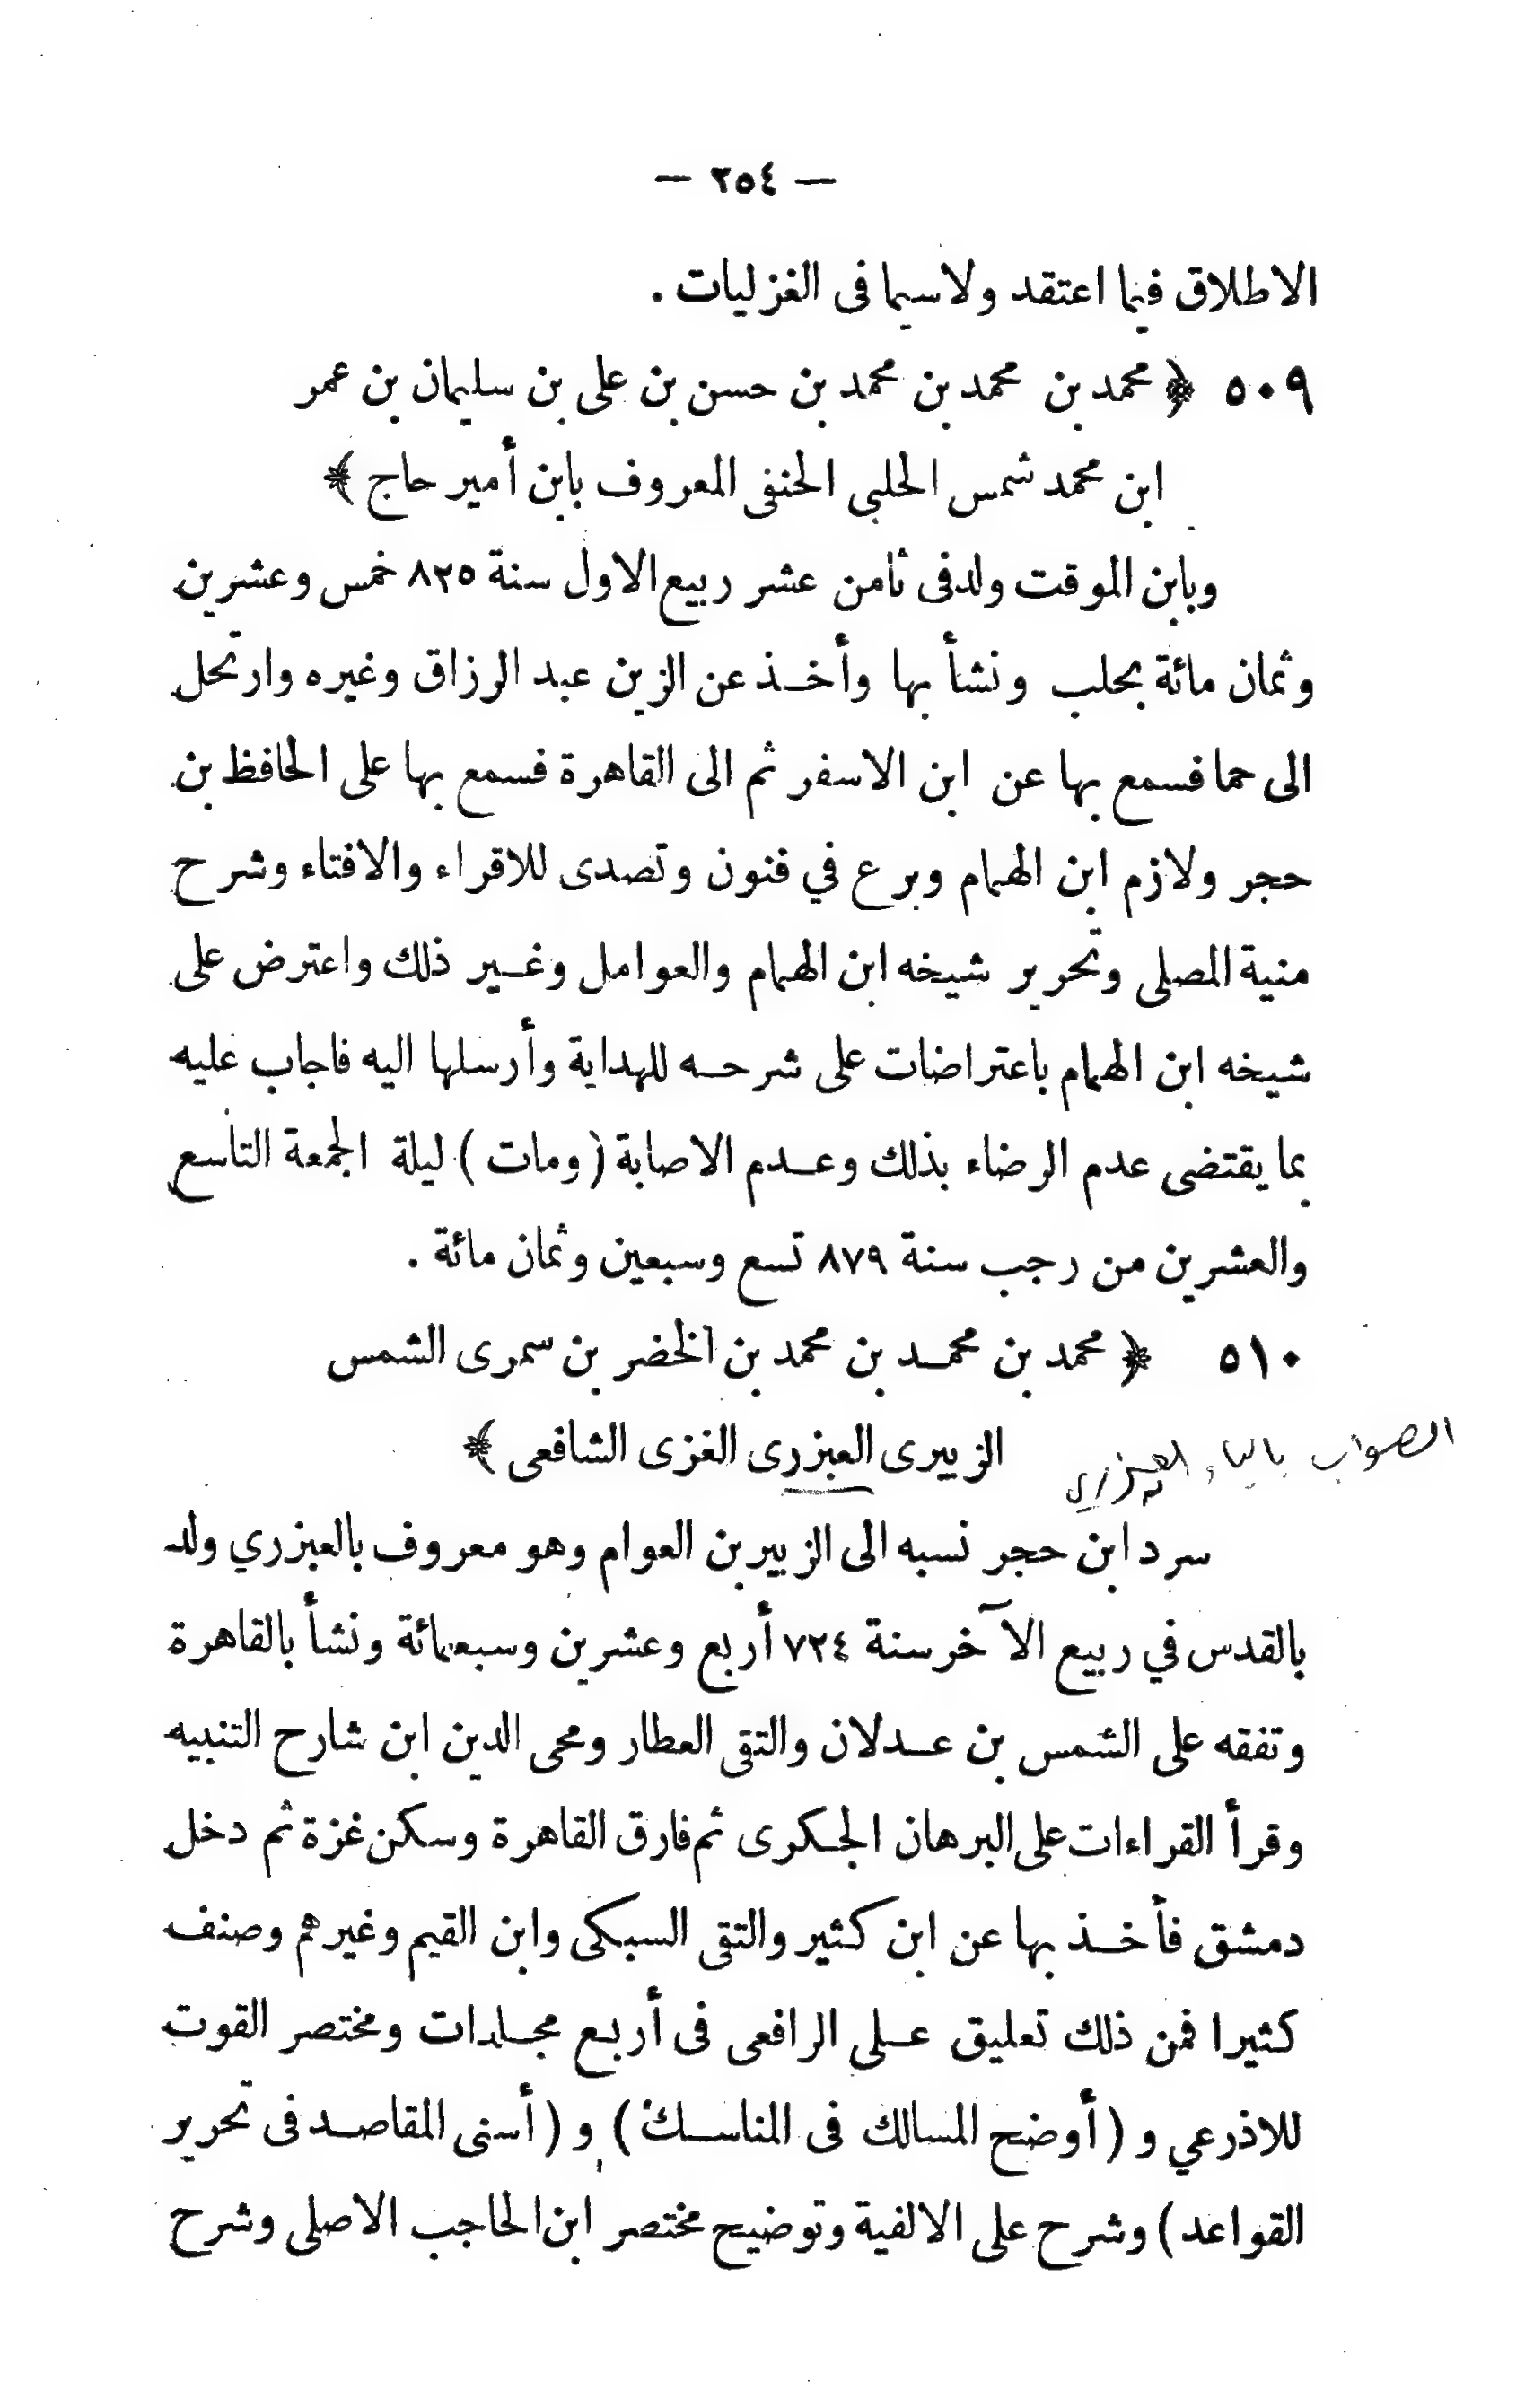 — ٢٥٤ —
الاطلاق فيما اعتقد ولاسيما فى الغزليات .
٥٠٩ ﴿ محمد بن محمد بن محمد بن حسن بن على بن سليمان بن عمر
ابن محمد شمس الحلبى الحنفى المعروف بابن أمير حاج ﴾
وبابن الموقت ولدفى ثامن عشر ربيع الاول سنة ٨٢٥ خمس وعشرين
وثمان مائة بحلب ونشأ بها وأخذ عن الزين عبد الرزاق وغيره وارتحل
الى حما فسمع بها عن ابن الاسفر ثم الى القاهرة فسمع بها على الحافظ بن
حجر ولازم ابن الهمام وبرع في فنون وتصدى للاقراء والافتاء وشرح
منية المصلى وتحرير شيخه ابن الهمام والعوامل وغير ذلك واعترض على
شيخه ابن الهمام باعتراضات على شرحه للهداية وأرسلها اليه فاجاب عليه
بما يقتضى عدم الرضاء بذلك وعدم الاصابة (ومات) ليلة الجمعة التاسع
والعشرين من رجب سنة ٨٧٩ تسع وسبعين وثمان مائة .
٥١٠ ﴿ محمد بن محمد بن محمد بن الخضر بن سمرى الشمس
الزبيرى العبزرى الغزى الشافعى ﴾
الصواب بالياء العيزري
سرد ابن حجر نسبه الى الزبير بن العوام وهو معروف بالعبزري ولد
بالقدس في ربيع الآخر سنة ٧٢٤ أربع وعشرين وسبعمائة ونشأ بالقاهرة
وتفقه على الشمس بن عدلان والتقى العطار ومحى الدين ابن شارح التنبيه
وقرأ القراءات على البرهان الجكرى ثم فارق القاهرة وسكن غزة ثم دخل
دمشق فأخذ بها عن ابن كثير والتقى السبكى وابن القيم وغيرهم وصنف
كثيرا فمن ذلك تعليق على الرافعى فى أربع مجلدات ومختصر القوت
للاذرعي و (أوضح المسالك فى المناسك) و (أسنى المقاصد فى تحرير
القواعد) وشرح على الالفية وتوضيح مختصر ابن الحاجب الاصلى وشرح